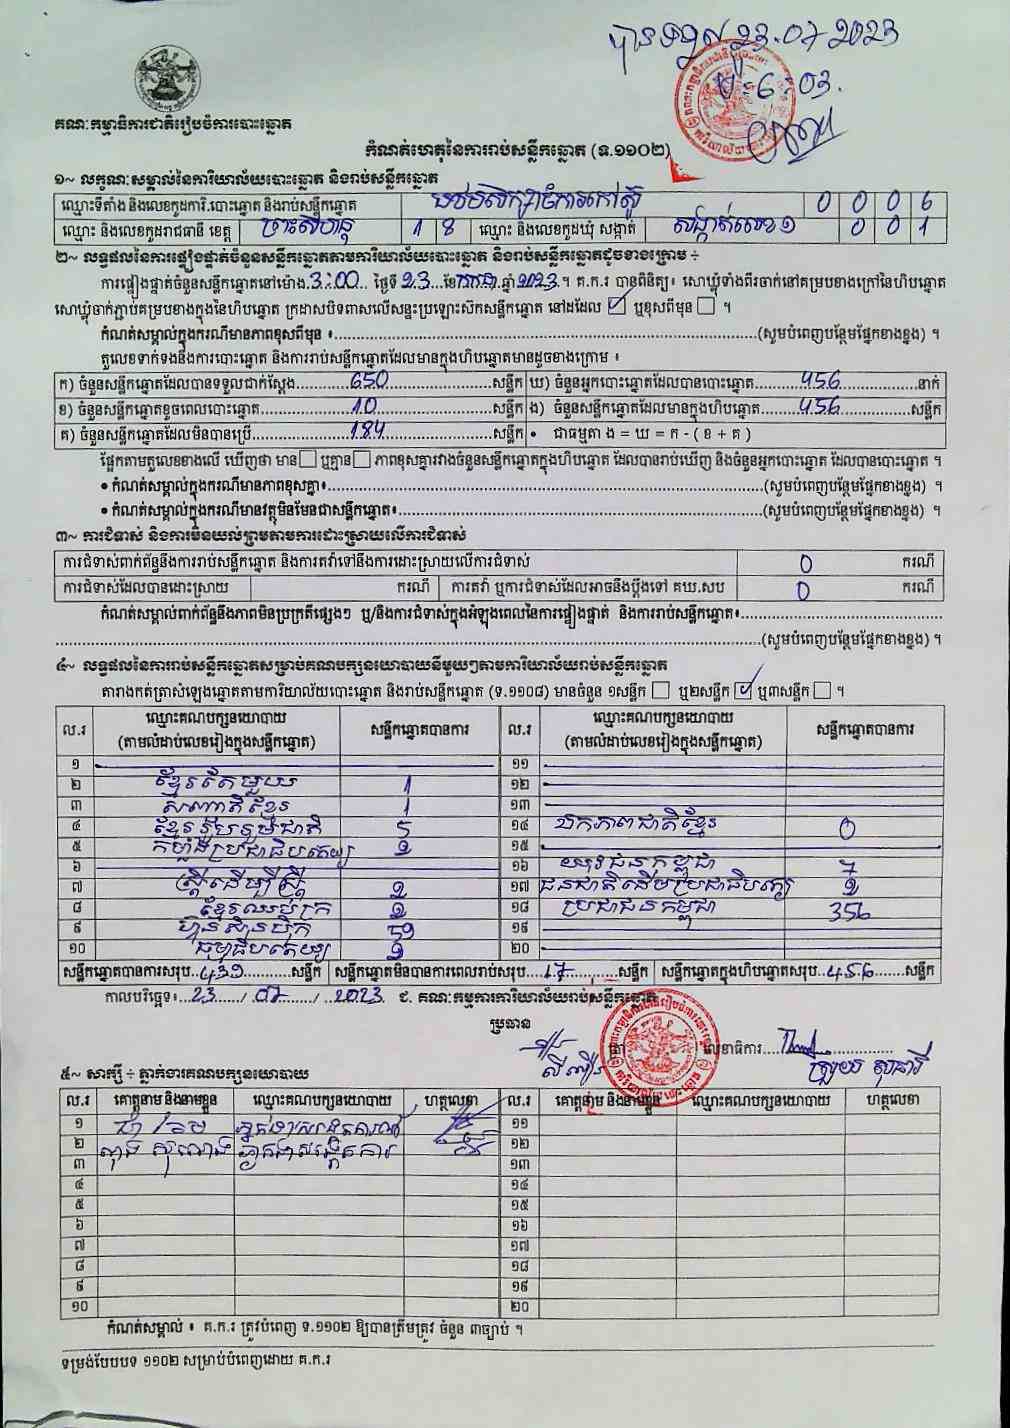 បានទទួល 23.07.2023
ម៉ : 6 : 03.
គណៈកម្មាធិការជាតិរៀបចំការបោះឆ្នោត
កំណត់ហេតុនៃការរាប់សន្លឹកឆ្នោត (ទ.១១០២)
១~ លក្ខណៈសម្គាល់នៃការិយាល័យបោះឆ្នោត និងរាប់សន្លឹកឆ្នោត
ឈ្មោះទីតាំង និងលេខកូដការិ.បោះឆ្នោត និងរាប់សន្លឹកឆ្នោត មឋមសិក្សាចំការកៅស៊ូ 0 0 0 6
ឈ្មោះ និងលេខកូដរាជធានី ខេត្ត ព្រះសីហនុ 1 8 ឈ្មោះ និងលេខកូដឃុំ សង្កាត់ សង្កាត់លេខ១ 0 0 1
២~ លទ្ធផលនៃការផ្ទៀងផ្ទាត់ចំនួនសន្លឹកឆ្នោតតាមការិយាល័យបោះឆ្នោត និងរាប់សន្លឹកឆ្នោតដូចខាងក្រោម ÷
ការផ្ទៀងផ្ទាត់ចំនួនសន្លឹកឆ្នោតនៅម៉ោង.3:00.. ថ្ងៃទី 23...ខែកក្កដា.ឆ្នាំ 2023.។ គ.ក.រ បានពិនិត្យ៖ សោឃ្លុំទាំងពីរចាក់នៅគម្របខាងក្រៅនៃហិបឆ្នោត
សោឃ្លុំចាក់ភ្ជាប់គម្របខាងក្នុងនៃហិបឆ្នោត ក្រដាសបិទពាសលើសន្ទះប្រឡោះស៊កសន្លឹកឆ្នោត នៅដដែល ☑ ឬខុសពីមុន ☐ ។
កំណត់សម្គាល់ក្នុងករណីមានភាពខុសពីមុន ៖.....(សូមបំពេញបន្ថែមផ្នែកខាងខ្នង) ។
តួលេខទាក់ទងនឹងការបោះឆ្នោត និងការរាប់សន្លឹកឆ្នោតដែលមានក្នុងហិបឆ្នោតមានដូចខាងក្រោម ៖
ក) ចំនួនសន្លឹកឆ្នោតដែលបានទទួលជាក់ស្តែង.....650.....សន្លឹក ឃ) ចំនួនអ្នកបោះឆ្នោតដែលបានបោះឆ្នោត.....456.....នាក់
ខ) ចំនួនសន្លឹកឆ្នោតខូចពេលបោះឆ្នោត.....10.....សន្លឹក ង) ចំនួនសន្លឹកឆ្នោតដែលមានក្នុងហិបឆ្នោត.....456.....សន្លឹក
គ) ចំនួនសន្លឹកឆ្នោតដែលមិនបានប្រើ.....184.....សន្លឹក • ជាធម្មតា ង = ឃ = ក - ( ខ + គ )
ផ្អែកតាមតួលេខខាងលើ ឃើញថា មាន ☐ ឬគ្មាន ☐ ភាពខុសគ្នារវាងចំនួនសន្លឹកឆ្នោតក្នុងហិបឆ្នោត ដែលបានរាប់ឃើញ និងចំនួនអ្នកបោះឆ្នោត ដែលបានបោះឆ្នោត ។
• កំណត់សម្គាល់ក្នុងករណីមានភាពខុសគ្នា៖.....(សូមបំពេញបន្ថែមផ្នែកខាងខ្នង) ។
• កំណត់សម្គាល់ក្នុងករណីមានវត្ថុមិនមែនជាសន្លឹកឆ្នោត៖.....(សូមបំពេញបន្ថែមផ្នែកខាងខ្នង) ។
៣~ ការជំទាស់ និងការមិនយល់ព្រមតាមការដោះស្រាយលើការជំទាស់
ការជំទាស់ពាក់ព័ន្ធនឹងការរាប់សន្លឹកឆ្នោត និងការតវ៉ាទៅនឹងការដោះស្រាយលើការជំទាស់ 0 ករណី
ការជំទាស់ដែលបានដោះស្រាយ ករណី ការតវ៉ា ឬការជំទាស់ដែលអាចនឹងប្តឹងទៅ គឃ.សប 0 ករណី
កំណត់សម្គាល់ពាក់ព័ន្ធនឹងភាពមិនប្រក្រតីផ្សេងៗ ឬ/និងការជំទាស់ក្នុងអំឡុងពេលនៃការផ្ទៀងផ្ទាត់ និងការរាប់សន្លឹកឆ្នោត៖.....
.....(សូមបំពេញបន្ថែមផ្នែកខាងខ្នង) ។
៤~ លទ្ធផលនៃការរាប់សន្លឹកឆ្នោតសម្រាប់គណបក្សនយោបាយនីមួយៗតាមការិយាល័យរាប់សន្លឹកឆ្នោត
តារាងកត់ត្រាសំឡេងឆ្នោតតាមការិយាល័យបោះឆ្នោត និងរាប់សន្លឹកឆ្នោត (ទ.១១០៨) មានចំនួន ១សន្លឹក ☐ ឬ២សន្លឹក ☑ ឬ៣សន្លឹក ☐ ។
ល.រ ឈ្មោះគណបក្សនយោបាយ (តាមលំដាប់លេខរៀងក្នុងសន្លឹកឆ្នោត) សន្លឹកឆ្នោតបានការ ល.រ ឈ្មោះគណបក្សនយោបាយ (តាមលំដាប់លេខរៀងក្នុងសន្លឹកឆ្នោត) សន្លឹកឆ្នោតបានការ
១ ១១
២ ខ្មែរតែមួយ 1 ១២
៣ សញ្ជាតិខ្មែរ 1 ១៣
៤ ខ្មែររួបរួមជាតិ 5 ១៤ ឯកភាពជាតិខ្មែរ 0
៥ កម្លាំងប្រជាធិបតេយ្យ ១ ១៥
៦ ១៦ យុវជនកម្ពុជា 7
៧ ស្ត្រីដើម្បីស្ត្រី ១៧ ជនជាតិដើមប្រជាធិបតេយ្យ
៨ ខ្មែរឈប់ក្រ ១៨ ប្រជាជនកម្ពុជា 356
៩ ហ៊្វុនស៊ិនប៉ិក 59 ១៩
១០ ធម្មាធិបតេយ្យ ២០
សន្លឹកឆ្នោតបានការសរុប..439.....សន្លឹក សន្លឹកឆ្នោតមិនបានការពេលរាប់សរុប...17.....សន្លឹក សន្លឹកឆ្នោតក្នុងហិបឆ្នោតសរុប..456.....សន្លឹក
កាលបរិច្ឆេទ៖..23...../..07...../...2023. ជ. គណៈកម្មការការិយាល័យរាប់សន្លឹកឆ្នោត
ប្រធាន
លេខាធិការ.....
៥~ សាក្សី ÷ ភ្នាក់ងារគណបក្សនយោបាយ
ល.រ គោត្តនាម និងនាមខ្លួន ឈ្មោះគណបក្សនយោបាយ ហត្ថលេខា ល.រ គោត្តនាម និងនាមខ្លួន ឈ្មោះគណបក្សនយោបាយ ហត្ថលេខា
១ ១១
២ ភ្នាក់ងារសង្កេតការ ១២
៣ ១៣
៤ ១៤
៥ ១៥
៦ ១៦
៧ ១៧
៨ ១៨
៩ ១៩
១០ ២០
កំណត់សម្គាល់ ៖ គ.ក.រ ត្រូវបំពេញ ទ.១១០២ ឱ្យបានត្រឹមត្រូវ ចំនួន ៣ច្បាប់ ។
ទម្រង់បែបបទ ១១០២ សម្រាប់បំពេញដោយ គ.ក.រ